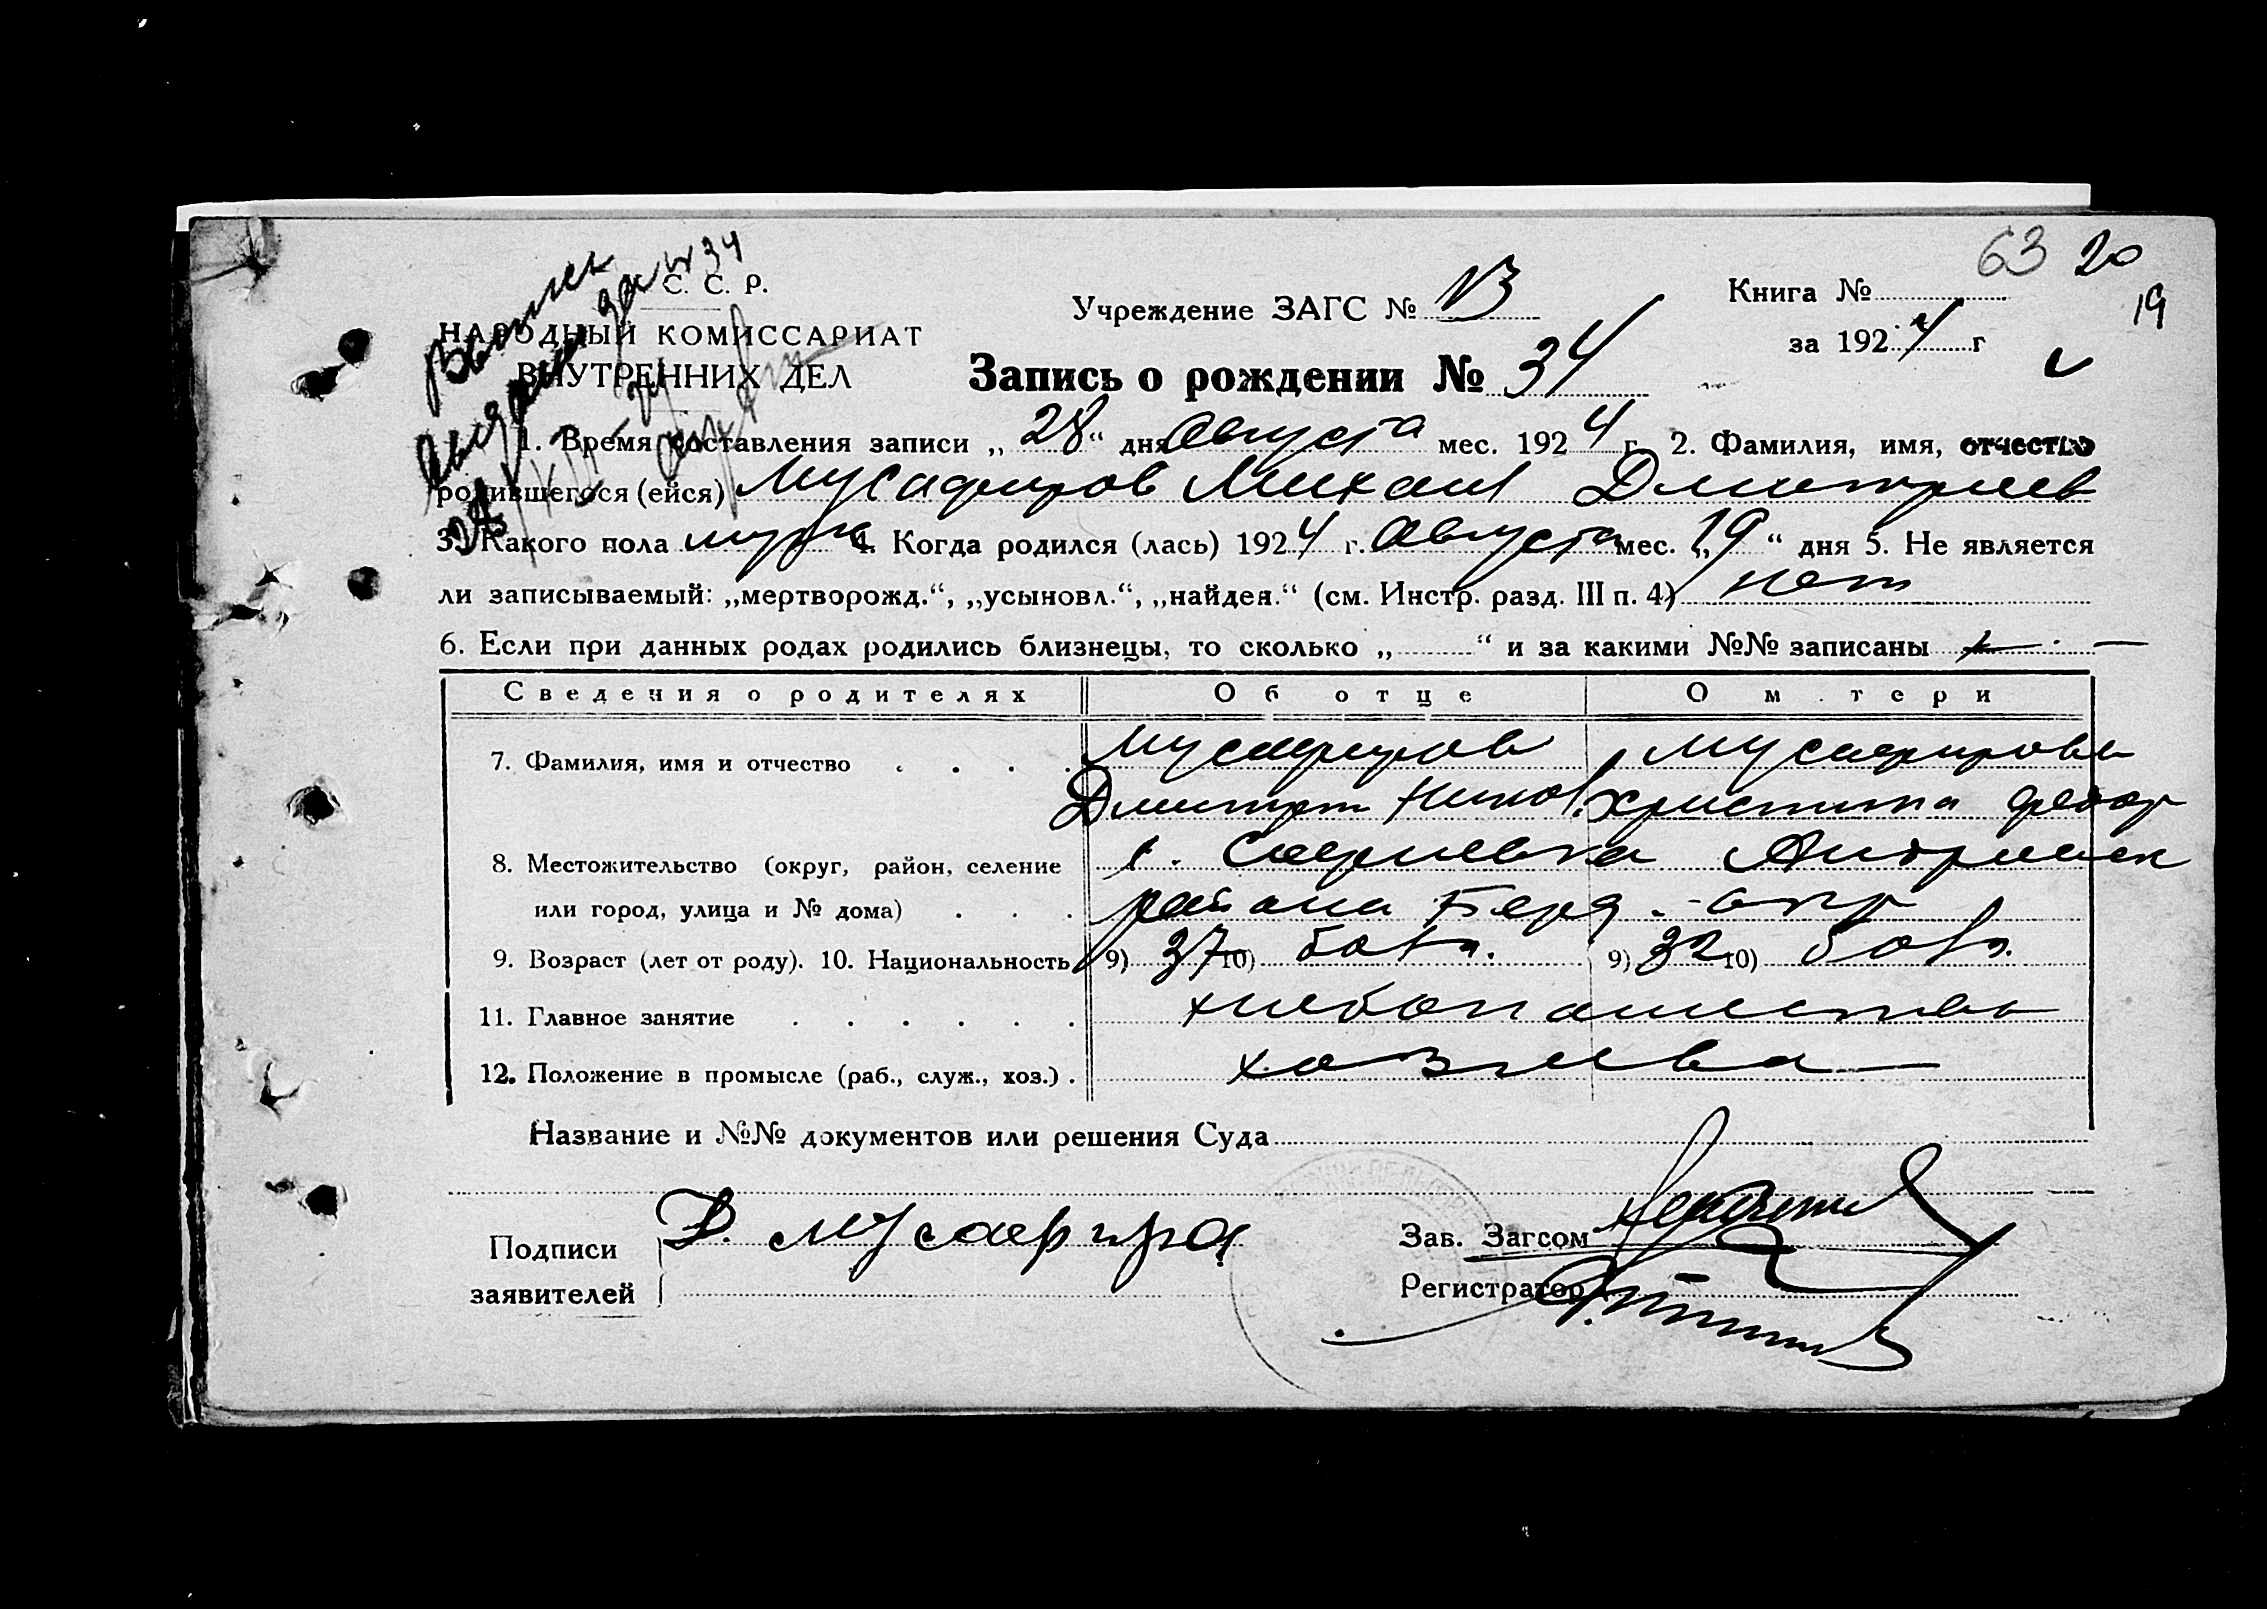 63 20
19
С. С. Р.
НАРОДНЫЙ КОМИССАРИАТ
ВНУТРЕННИХ ДЕЛ
Учреждение ЗАГС №
Книга №
за 1924 г
Запись о рождении № 34
1. Время составления записи „28“ дня Августа мес. 1924 г. 2. Фамилия, имя, отчество
родившегося (ейся) Мусафиров Михаил Дмитриев
3. Какого пола муж 4. Когда родился (лась) 1924 г. Августа мес. „19“ дня 5. Не является
ли записываемый: „мертворожд.“, „усыновл.“, „найден.“ (см. Инстр. разд. III п. 4) нет
6. Если при данных родах родились близнецы, то сколько „ “ и за какими №№ записаны —
Сведения о родителях Об отце О м тери
7. Фамилия, имя и отчество Мусафиров Мусафирова
Дмитрий Никол. Христина Федор
8. Местожительство (округ, район, селение с. Софиевка Андриевск
или город, улица и № дома) района Берд. окр
9. Возраст (лет от роду). 10. Национальность 9) 37 10) болг. 9) 32 10) болг.
11. Главное занятие хлебопашество
12. Положение в промысле (раб., служ., хоз.) хозяева
Название и №№ документов или решения Суда
Подписи Д. Мусафира
заявителей
Зав. Загсом
Регистратор